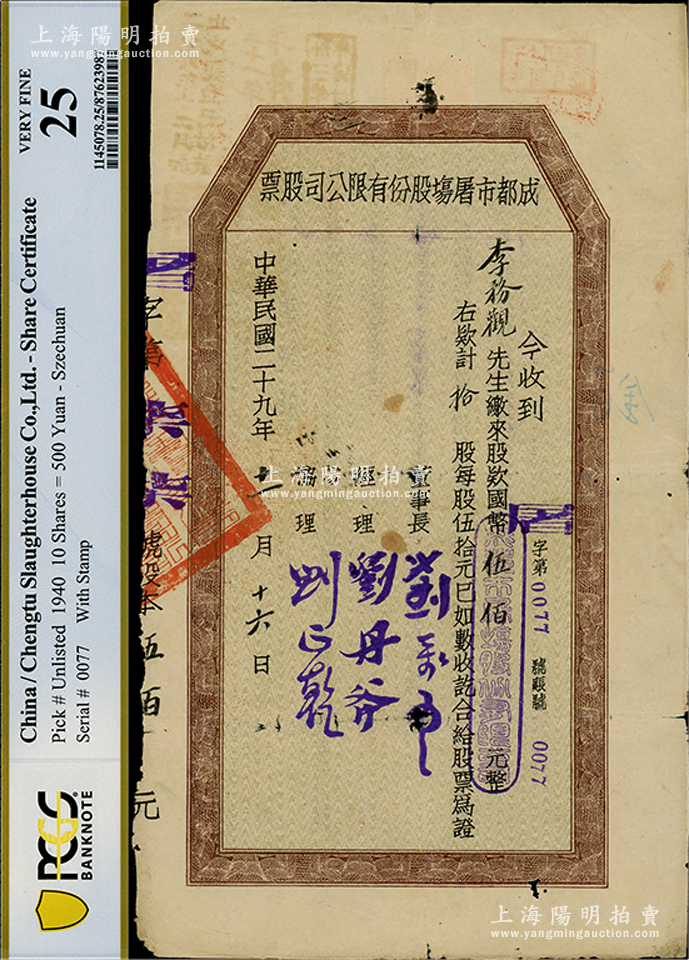 上海陽明拍賣
www.yangmingauction.com
China / Chengtu Slaughterhouse Co.,Ltd. - Share Certificate
Pick # Unlisted 1940 10 Shares = 500 Yuan - Szechuan
Serial # 0077 With Stamp
VERY FINE
25
1145078.25/87623987
PCGS
BANKNOTE
成都市屠場股份有限公司股票
今收到
李務觀先生繳來股欵國幣伍佰元整
右欵計拾股每股伍拾元已如數收訖合給股票爲證
字第0077號賬號0077
董事長
經理 劉丹谷
協理 劉正乾
中華民國二十九年 月十六日
字第
號股本伍佰元
上海陽明拍賣
www.yangmingauction.com
上海陽明拍賣
www.yangmingauction.com